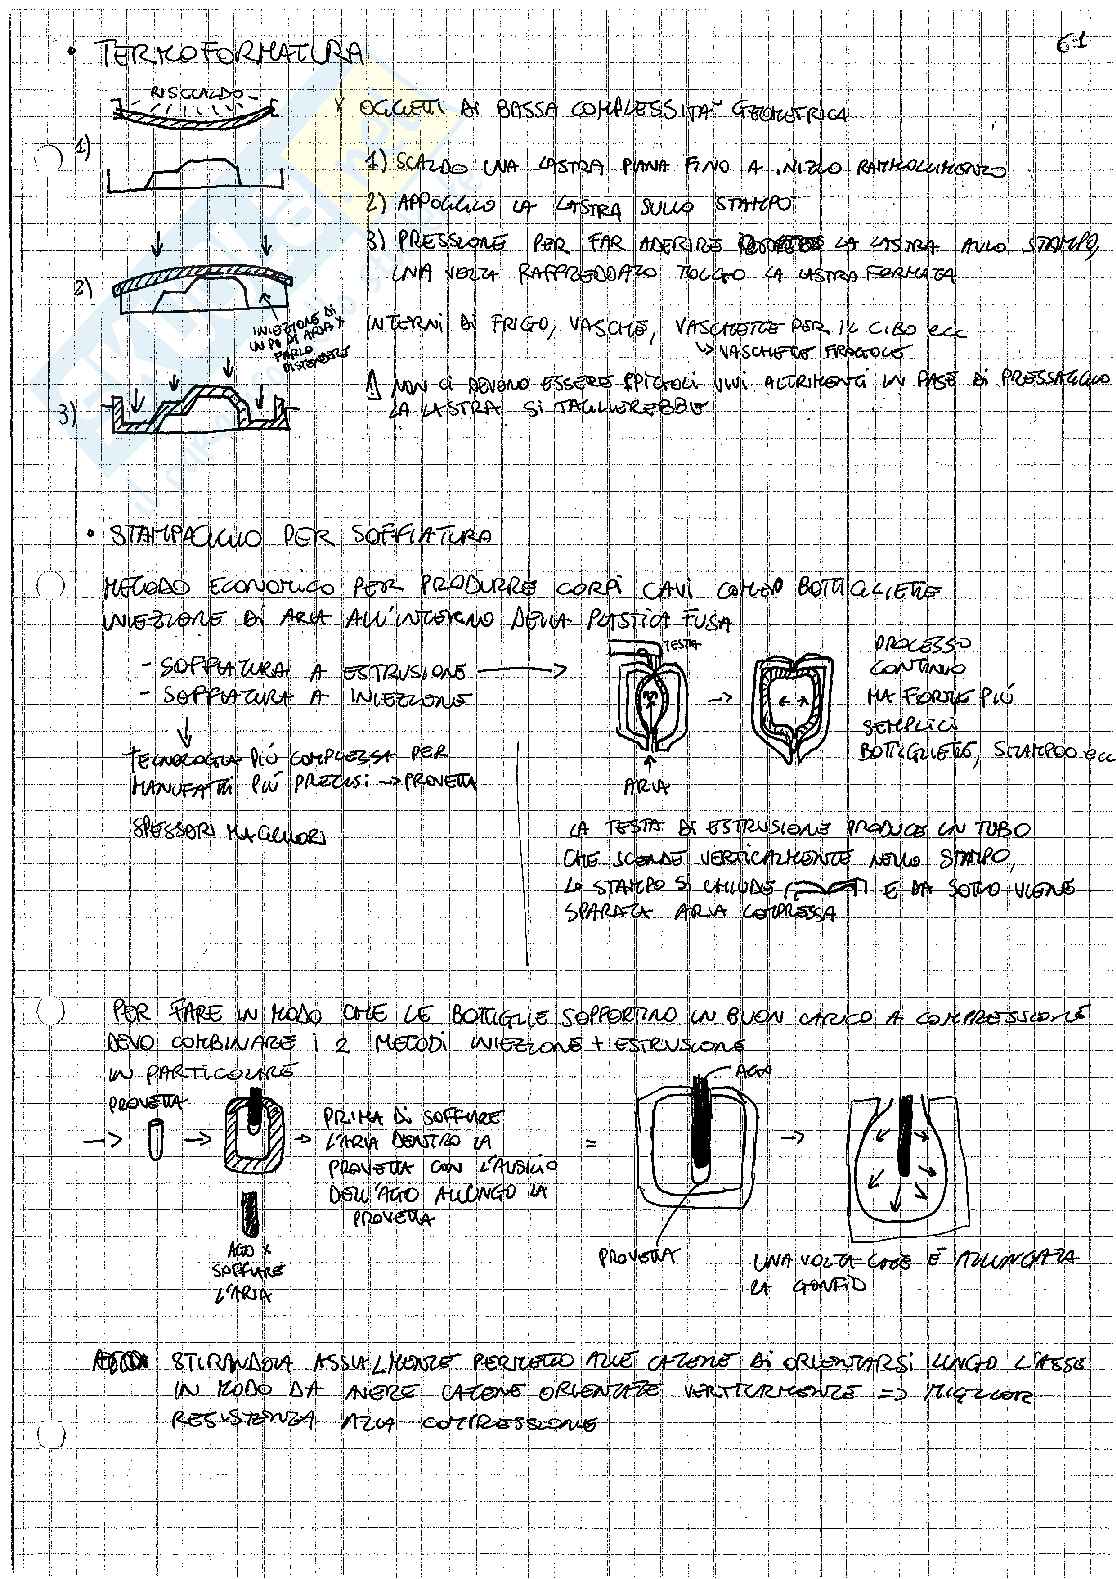 61
• TERMOFORMATURA
RISCALDO
x OGGETTI DI BASSA COMPLESSITA' GEOMETRICA
1)
1) SCALDO UNA LASTRA PIANA FINO A INIZIO RAMMOLLIMENTO
2) APPOGGIO LA LASTRA SULLO STAMPO
3) PRESSIONE PER FAR ADERIRE LA LASTRA ALLO STAMPO,
UNA VOLTA RAFFREDDATO TOLGO LA LASTRA FORMATA
2)
INIEZIONE DI
UN PO' DI ARIA x
FARLO
DISTENDERE
INTERNI DI FRIGO, VASCHE, VASCHETTE PER IL CIBO ecc
↳ VASCHETTE FRAGOLE
3)
⚠ NON CI DEVONO ESSERE SPIGOLI VIVI ALTRIMENTI IN FASE DI PRESSAGGIO
LA LASTRA SI TAGLIEREBBE
• STAMPAGGIO PER SOFFIATURA
METODO ECONOMICO PER PRODURRE CORPI CAVI COME BOTTIGLIETTE
INIEZIONE DI ARIA ALL'INTERNO DELLA PLASTICA FUSA
- SOFFIATURA A ESTRUSIONE →
- SOFFIATURA A INIEZIONE
↓
TECNOLOGIA PIÚ COMPLESSA PER
MANUFATTI PIÚ PRECISI → PROVETTA
SPESSORI MAGGIORI
TESTA
ARIA
PROCESSO
CONTINUO
MA FORME PIÚ
SEMPLICI
BOTTIGLIETTE, SHAMPOO ecc
LA TESTA DI ESTRUSIONE PRODUCE UN TUBO
CHE SCENDE VERTICALMENTE NELLO STAMPO,
LO STAMPO SI CHIUDE E DA SOTTO VIENE
SPARATA ARIA COMPRESSA
PER FARE IN MODO CHE LE BOTTIGLIE SOPPORTINO UN BUON CARICO A COMPRESSIONE
DEVO COMBINARE I 2 METODI INIEZIONE + ESTRUSIONE
IN PARTICOLARE
PROVETTA
AGO x
SOFFIARE
L'ARIA
PRIMA DI SOFFIARE
L'ARIA DENTRO LA
PROVETTA CON L'AUSILIO
DELL'AGO ALLUNGO LA
PROVETTA
=
AGO
PROVETTA
UNA VOLTA CHE È ALLUNGATA
LA GONFIO
STIRANDOLA ASSIALMENTE PERMETTO ALLE CATENE DI ORIENTARSI LUNGO L'ASSE
IN MODO DA AVERE CATENE ORIENTATE VERTICALMENTE => MIGLIOR
RESISTENZA ALLA COMPRESSIONE